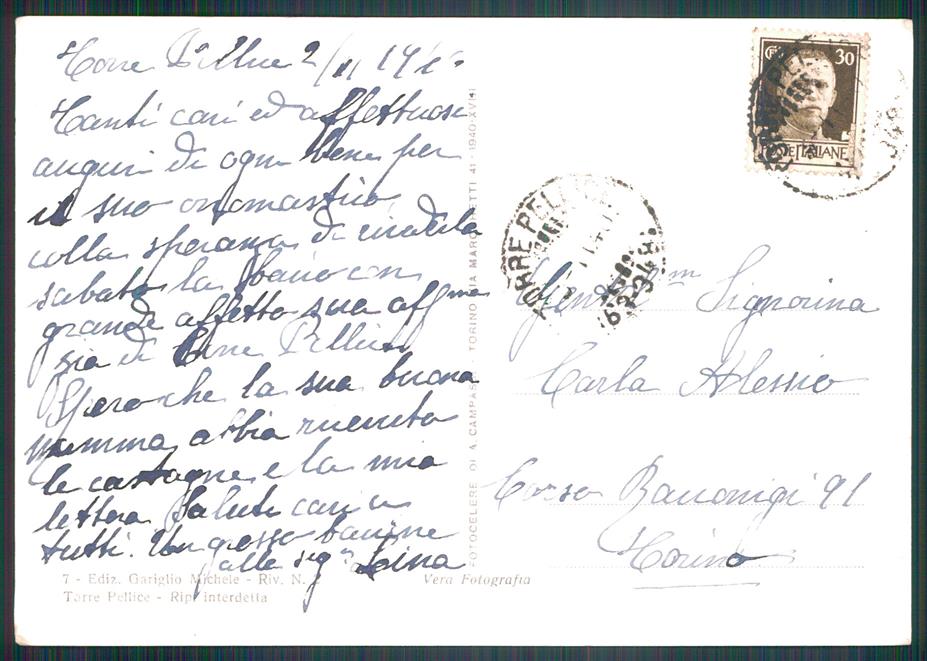 Torre Pellice 2/11 194
Tanti cari ed affettuosi
auguri di ogni bene per
il suo onomastico,
colla speranza di rivederla
sabato la bacio con
grande affetto sua aff.ma
zia di Torre Pellice
Spero che la sua buona
mamma abbia ricevuto
le castagne e la mia
lettera Saluti cari a
tutti. Un grosso bacione
alla sig.a Lina
7 - Ediz. Gariglio Michele - Riv. N. 2
Torre Pellice - Rip. interdetta
Vera Fotografia
FOTOCELERE DI A. CAMPASSI - TORINO - VIA MAROCHETTI 41 - 1940-XVIII
30
POSTE ITALIANE
TORRE PELLICE
63-348
348
Gentil.m Signorina
Carla Alessio
Corso Racconigi 91
Torino